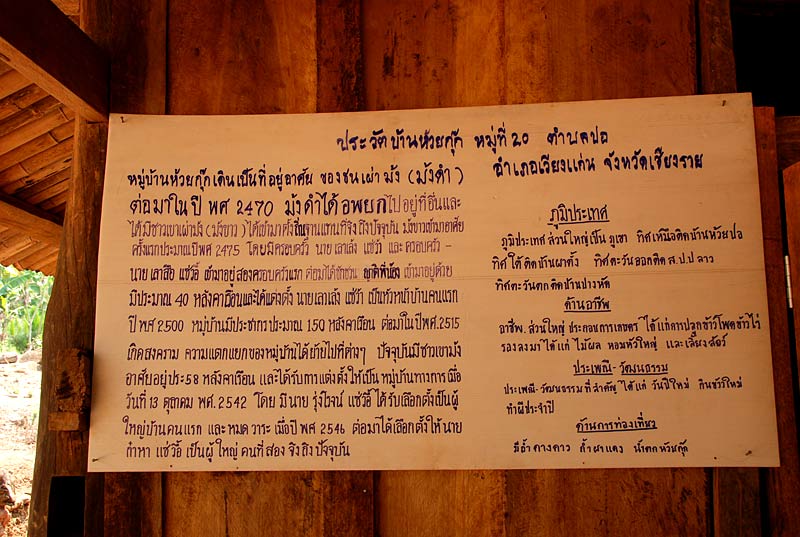 ประวัติบ้านห้วยกุ๊ก หมู่ที่ 20 ตำบลปอ
อำเภอเวียงแก่น จังหวัดเชียงราย
หมู่บ้านห้วยกุ๊กเดิมเป็นที่อยู่อาศัย ของชนเผ่าม้ง (ม้งดำ)
ต่อมาในปี พศ 2470 ม้งดำได้อพยกไปอยู่ที่อื่นและ
ได้มีชาวเขาเผ่าม้ง (ม้งขาว) ได้เข้ามาตั้งถิ่นฐานแทนที่จึงถึงปัจจุบัน ม้งขาวเข้ามาอาศัย
ครั้งแรกประมาณปีพศ 2475 โดยมีครอบครัว นายเลาเล้ง แซ่ว้า และ ครอบครัว -
นายเลาสือ แซ่วื้อ เข้ามาอยู่สองครอบครัวแรก ต่อมาได้ชักชวน ญาติพี่น้อง เข้ามาอยู่ด้วย
มีประมาณ 40 หลังคาเรือนและได้แต่งตั้ง นายเลาเล้ง แซ่ว้า เป็นหัวหน้าบ้านคนแรก
ปี พศ 2500 หมู่บ้านมีประชากรประมาณ 150 หลังคาเรือน ต่อมาในปีพศ. 2515
เกิดสงคราม ความแตกแยกของหมู่บ้านได้ย้ายไปที่ต่างๆ ปัจจุบันมีชาวเขาม้ง
อาศัยอยู่ประ 58 หลังคาเรือน และได้รับการแต่งตั้งให้เป็น หมู่บ้านทางการ เมื่อ
วันที่ 13 ตุลาคม พศ. 2542 โดย มีนาย รุ่งโรจน์ แซ่วื้อ ได้รับเลือกตั้งเป็นผู้
ใหญ่บ้านคนแรก และหมดวาระ เมื่อปี พศ 2546 ต่อมาได้เลือกตั้งให้นาย
กำหา แซ่วื้อ เป็นผู้ใหญ่ คนที่สอง จึงถึงปัจจุบัน
ภูมิประเทศ
ภูมิประเทศส่วนใหญ่เป็น ภูเขา ทิศเหนือติดบ้านห้วยปอ
ทิศใต้ติดบ้านผาตั้ง ทิศตะวันออกติด ส.ป.ป ลาว
ทิศตะวันตกติดบ้านปางหัด
ด้านอาชีพ
อาชีพ. ส่วนใหญ่ ประกอบการเกษตร ได้แก่การปลูกข้าวโพดข้าวไร่
รองลงมาได้แก่ ไม้ผล หอมหัวใหญ่ และเลี้ยงสัตว์
ประเพณี - วัฒนธรรม
ประเพณี - วัฒนธรรมที่สำคัญ ได้แก่ วันปีใหม่ กินข้าวใหม่
ทำผีประจำปี
ด้านการท่องเที่ยว
มีถ้ำค้างคาว ถ้ำผาแดง น้ำตกห้วยกุ๊ก